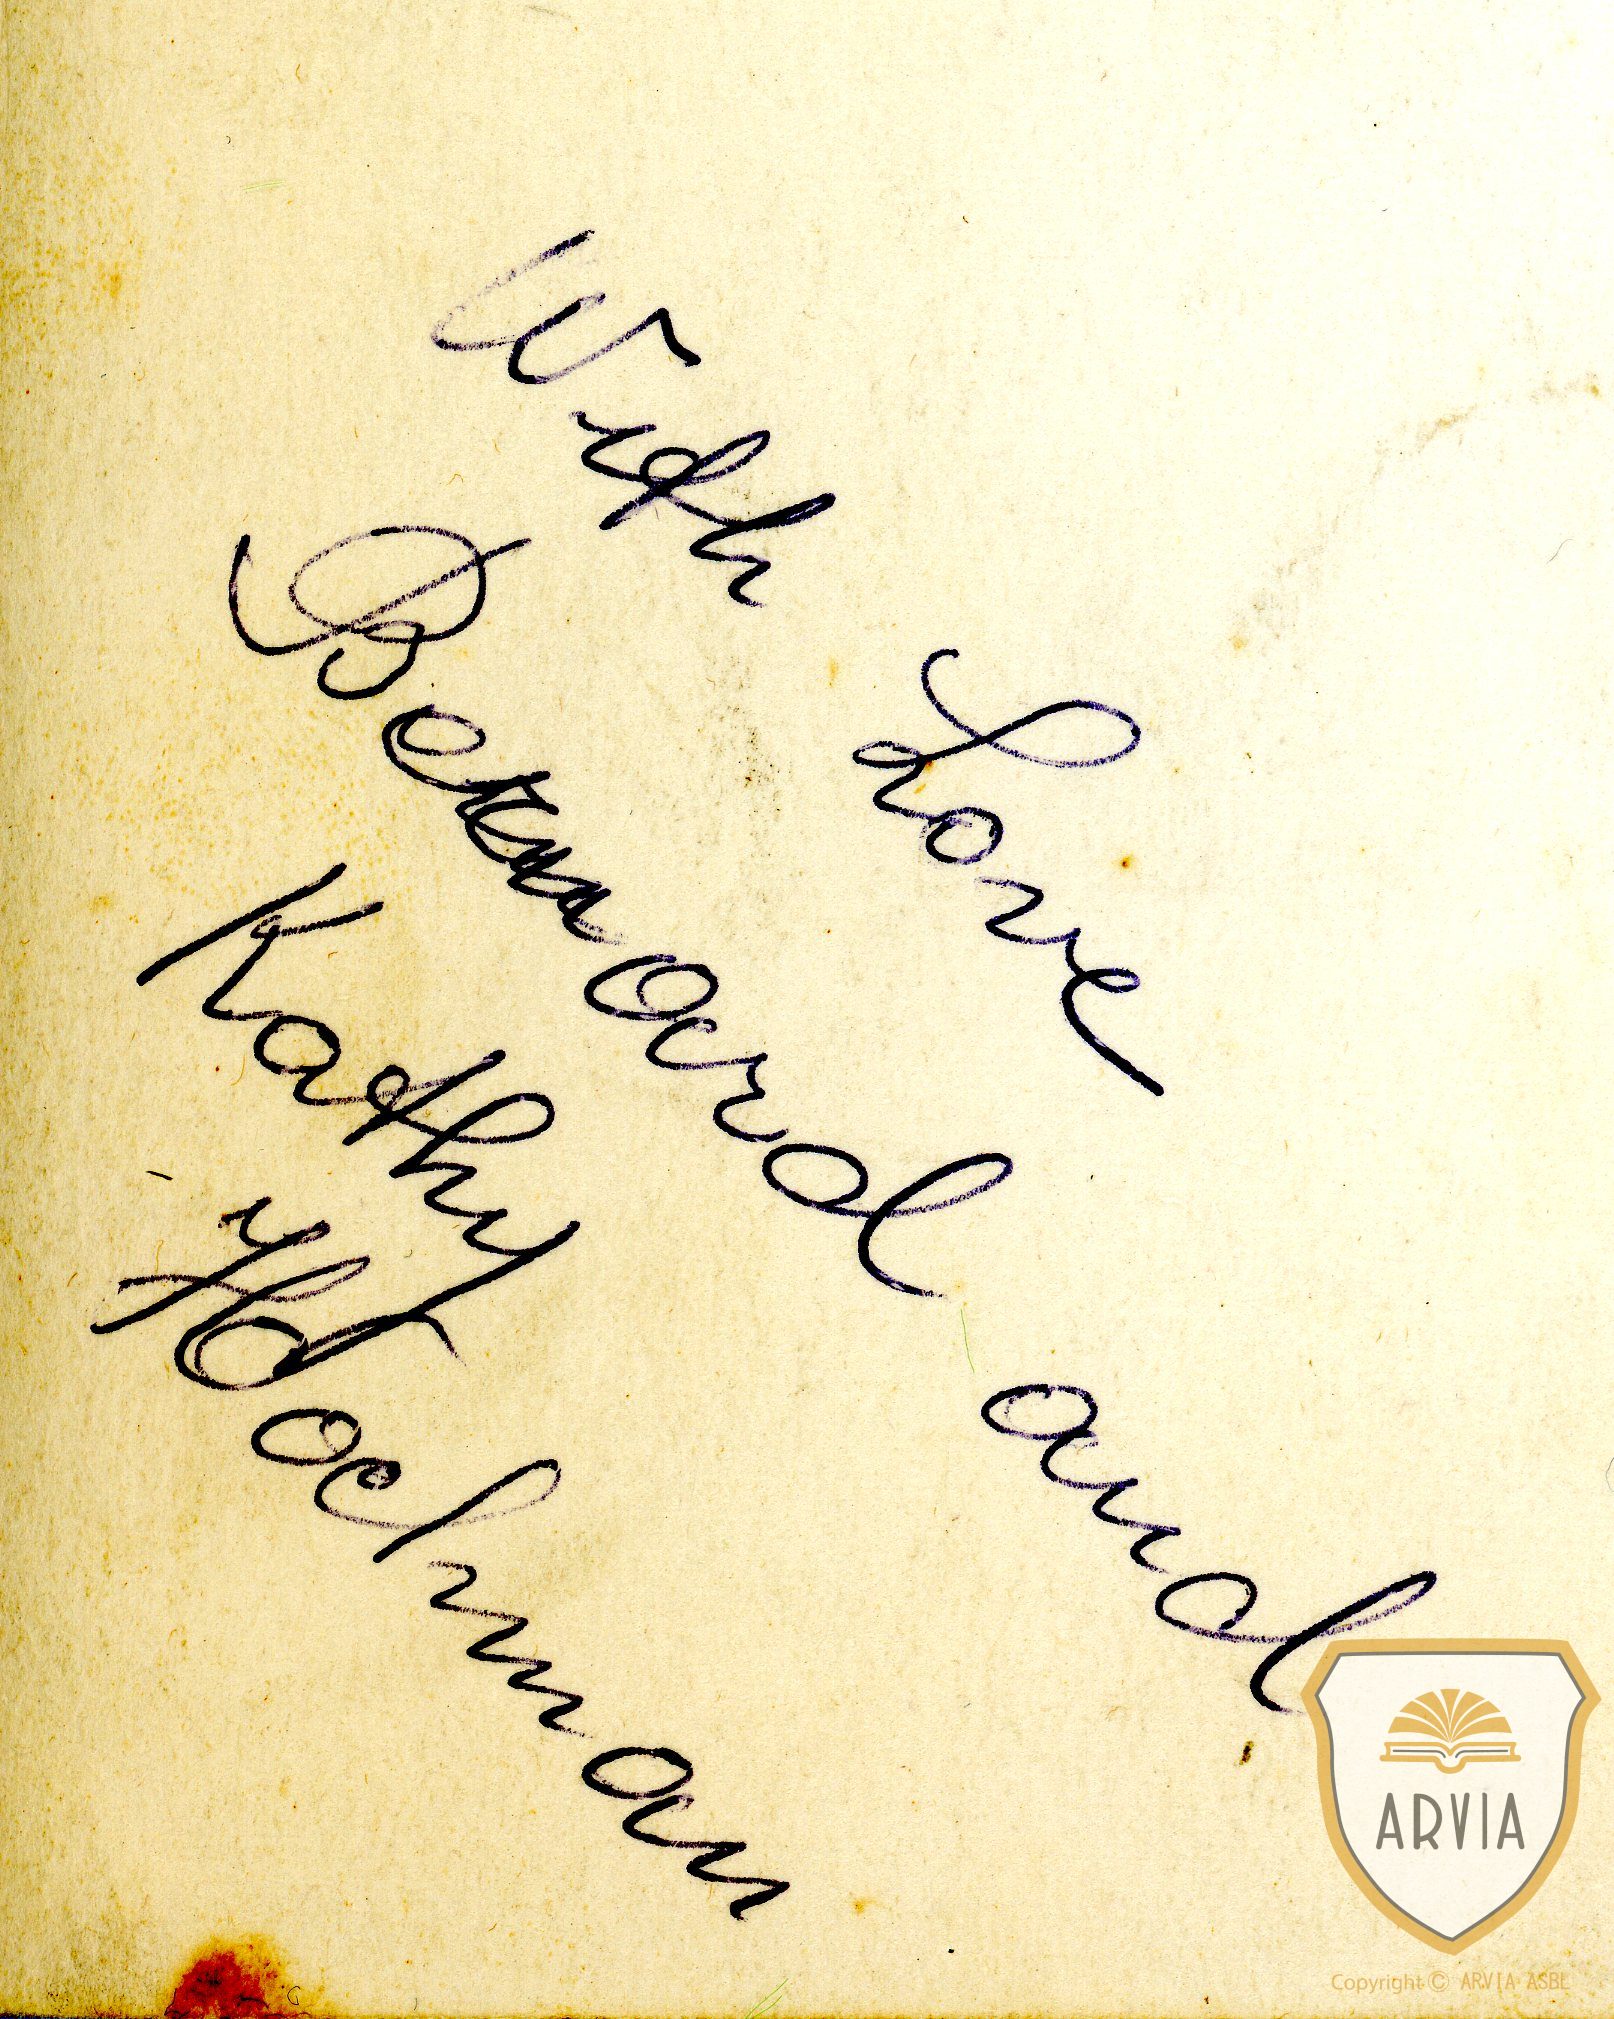 With Love
Bernard and
Kathy
Hochman
ARVIA
Copyright © ARVIA ASBL